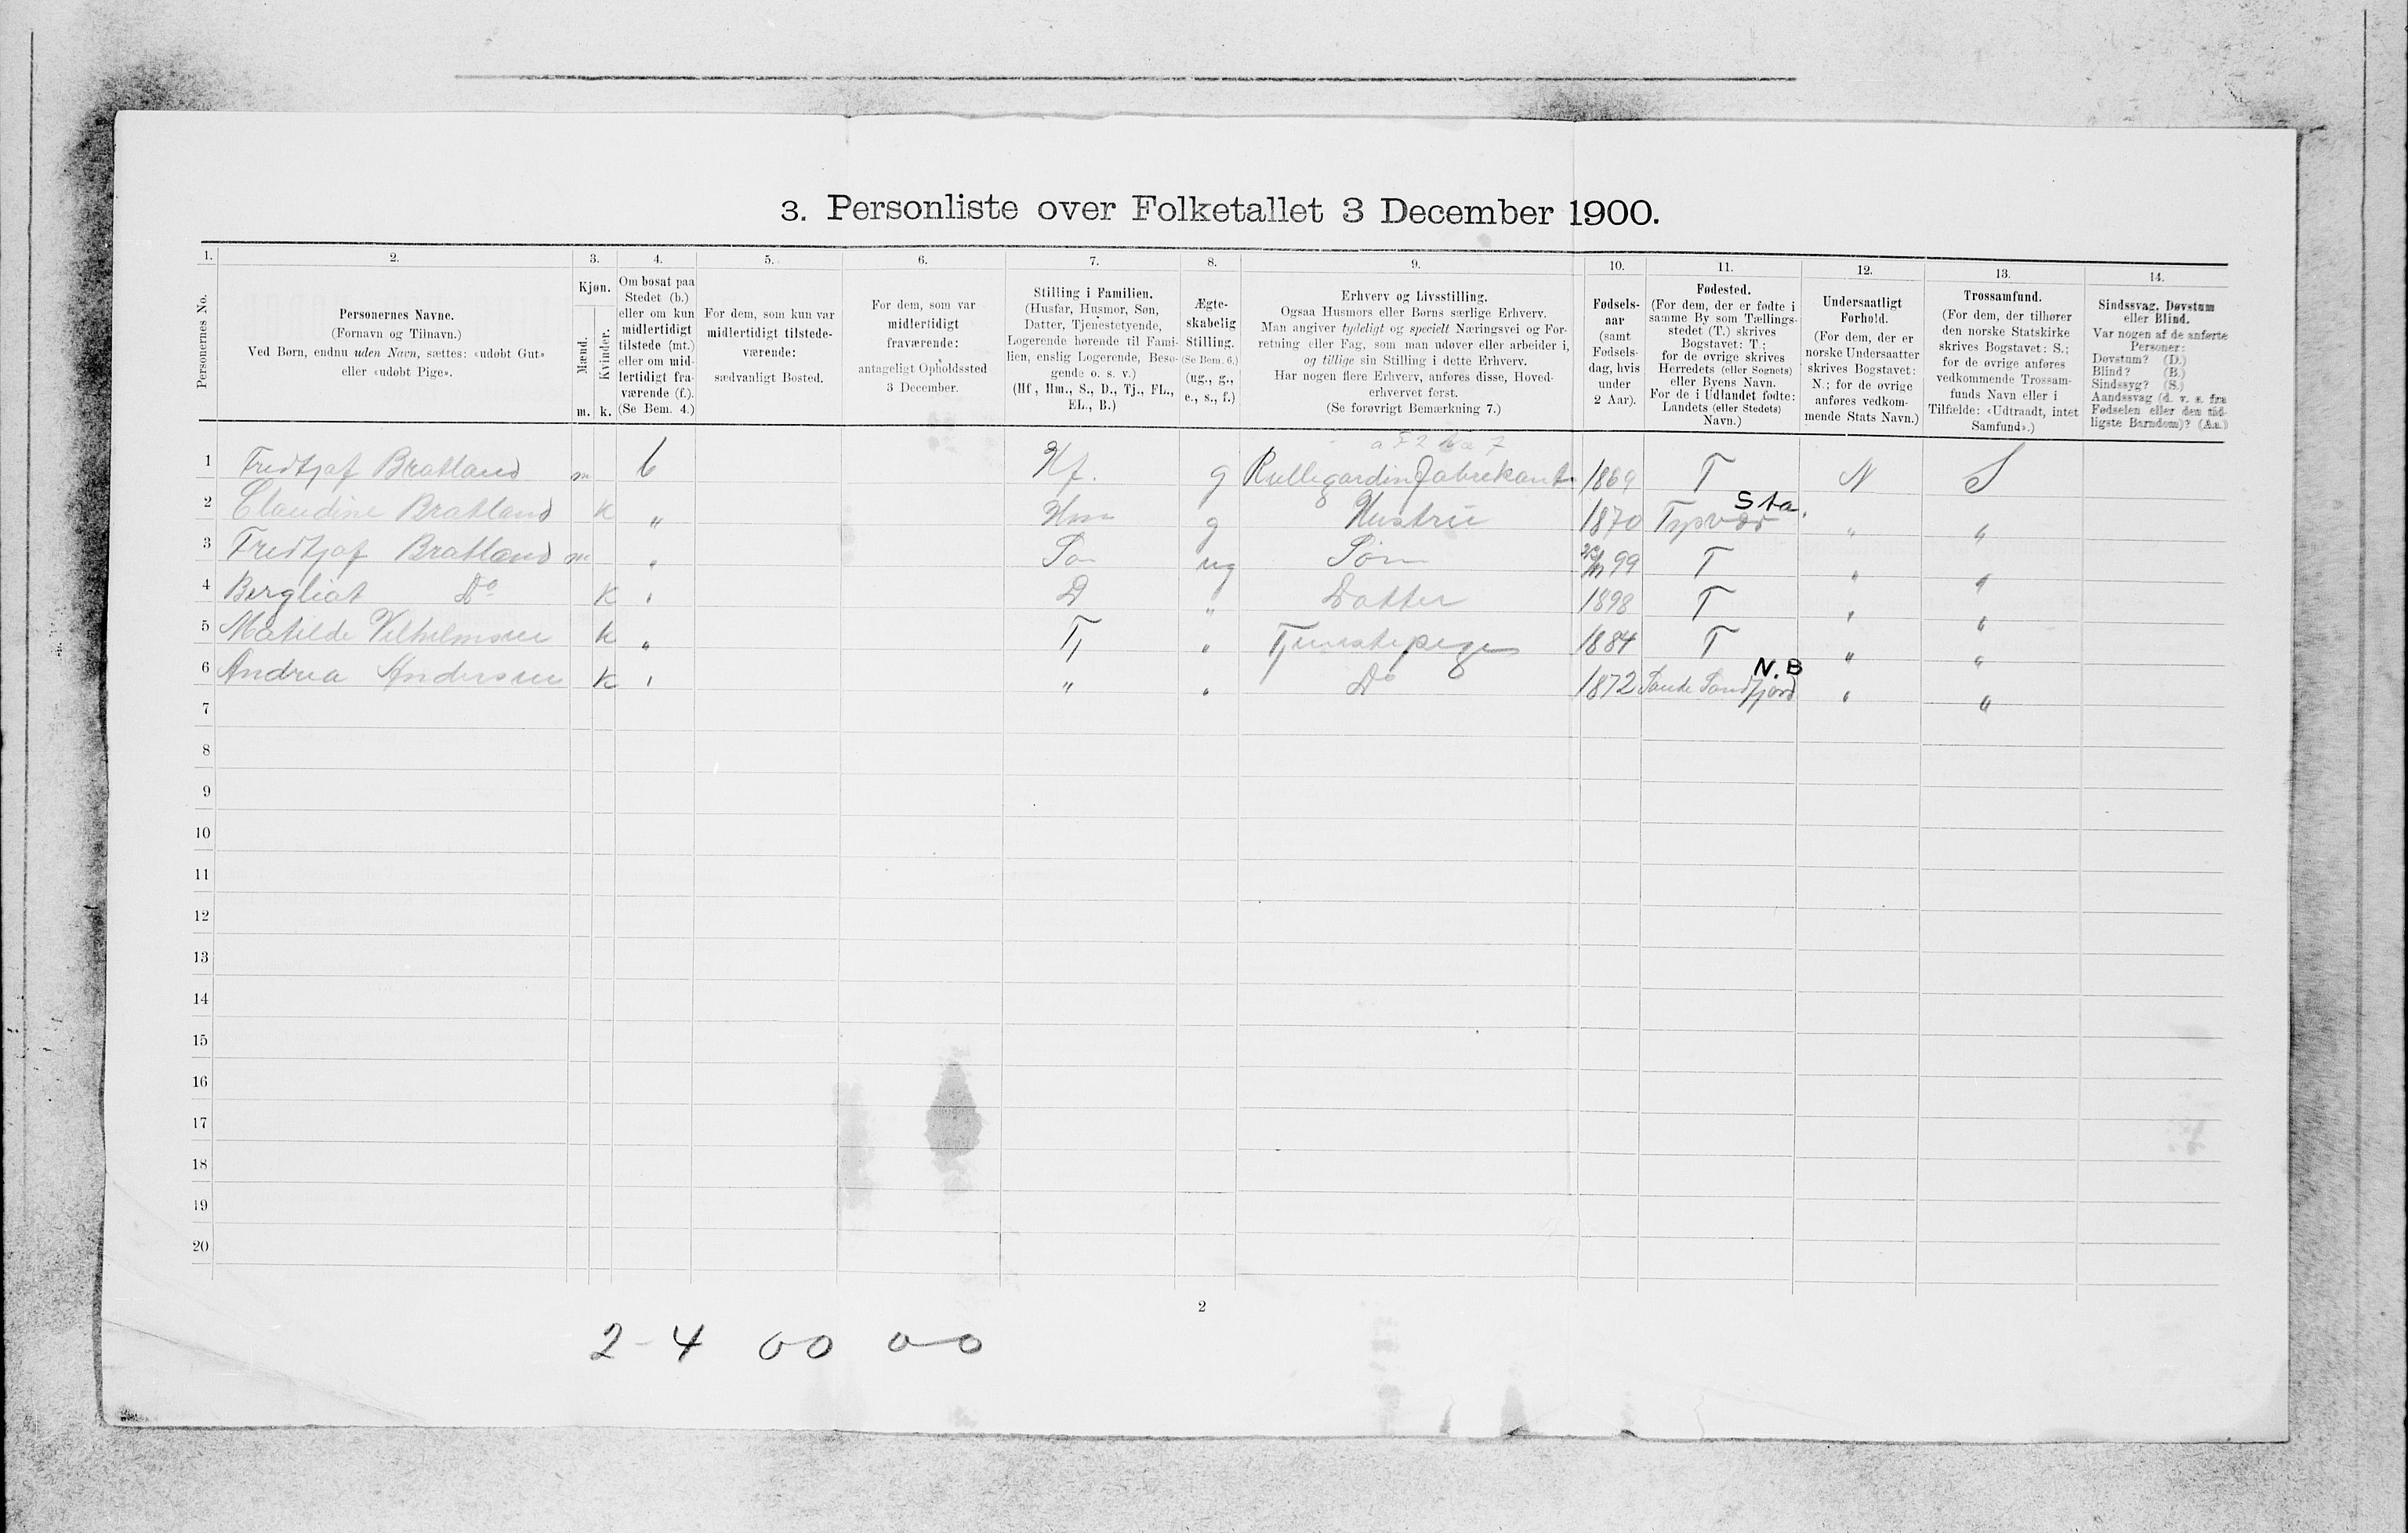 3. Personliste over Folketallet 3 December 1900.
1. 2. 3. 4. 5. 6. 7. 8. 9. 10. 11. 12. 13. 14.
Personernes No.
Personernes Navne.
(Fornavn og Tilnavn.)
Ved Børn, endnu uden Navn, sættes: «udøbt Gut»
eller «udøbt Pige».
Kjøn.
Mænd.
Kvinder.
m. k.
Om bosat paa
Stedet (b.)
eller om kun
midlertidigt
tilstede (mt.)
eller om mid-
lertidigt fra-
værende (f.).
(Se Bem. 4.)
For dem, som kun var
midlertidigt tilstede-
værende:
sædvanligt Bosted.
For dem, som var
midlertidigt
fraværende:
antageligt Opholdssted
3 December.
Stilling i Familien.
(Husfar, Husmor, Søn,
Datter, Tjenestetyende,
Logerende hørende til Fami-
lien, enslig Logerende, Besø-
gende o. s. v.)
(Hf., Hm., S., D., Tj., FL.,
EL., B.)
Ægte-
skabelig
Stilling.
(Se Bem. 6.)
(ug., g.,
e., s., f.)
Erhverv og Livsstilling.
Ogsaa Husmors eller Børns særlige Erhverv.
Man angiver tydeligt og specielt Næringsvei og For-
retning eller Fag, som man udøver eller arbeider i,
og tillige sin Stilling i dette Erhverv.
Har nogen flere Erhverv, anføres disse, Hoved-
erhvervet først.
(Se forøvrigt Bemærkning 7.)
Fødsels-
aar
(samt
Fødsels-
dag, hvis
under
2 Aar).
Fødested.
(For dem, der er fødte i
samme By som Tællings-
stedet (T.) skrives
Bogstavet: T.;
for de øvrige skrives
Herredets (eller Sognets)
eller Byens Navn.
For de i Udlandet fødte:
Landets (eller Stedets)
Navn.)
Undersaatligt
Forhold.
(For dem, der er
norske Undersaatter
skrives Bogstavet:
N.; for de øvrige
anføres vedkom-
mende Stats Navn.)
Trossamfund.
(For dem, der tilhører
den norske Statskirke
skrives Bogstavet: S.;
for de øvrige anføres
vedkommende Trossam-
funds Navn eller i
Tilfælde: «Udtraadt, intet
Samfund».)
Sindssvag, Døvstum
eller Blind.
Var nogen af de anførte
Personer:
Døvstum? (D.)
Blind? (B.)
Sindssyg? (S.)
Aandssvag (d. v. s. fra
Fødselen eller den tid-
ligste Barndom)? (Aa.)
1 Fredtjof Bratland m b Hf. g Rullegardinfabrikant 1869 T N S
2 Claudine Bratland k " Hm g Hustru 1870 Tysvær Sta. " "
3 Fredtjof Bratland m " Søn ug Søn 99 T " "
4 Bergliot Do k " D " Datter 1898 T " "
5 Matilde Vilhelmsen k " Tj " Tjenestepige 1884 T " "
6 Andrea Andersen k " " " Do 1872 Sande Sondfjord N.B " "
7
8
9
10
11
12
13
14
15
16
17
18
19
20
2
2-4 00 00